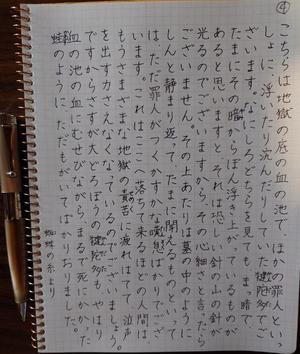 ④
こちらは地獄の底の血の池で、ほかの罪人といっ
しょに、浮いたり沈んだりしていた犍陀多でご
ざいます。なにしろどちらを見ても、まっ暗で、
たまにその暗からぼんやり浮き上がっているものが
あると思いますと、それは恐しい針の山の針が
光るのでございますから、その心細さと言ったら
ございません。その上あたりは墓の中のように
しんと静まり返って、たまに聞えるものといって
は、ただ罪人がつくかすかな嘆息ばかりでござ
います。これはここへ落ちて来るほどの人間は、
もうさまざまな地獄の責苦に疲れはてて、泣声
を出す力さえなくなっているのでございましょう。
ですからさすが大どろぼうの犍陀多も、やはり
血の池の血にむせびながら、まるで死にかかった
蛙のように、ただもがいてばかりおりました。
蜘蛛の糸より